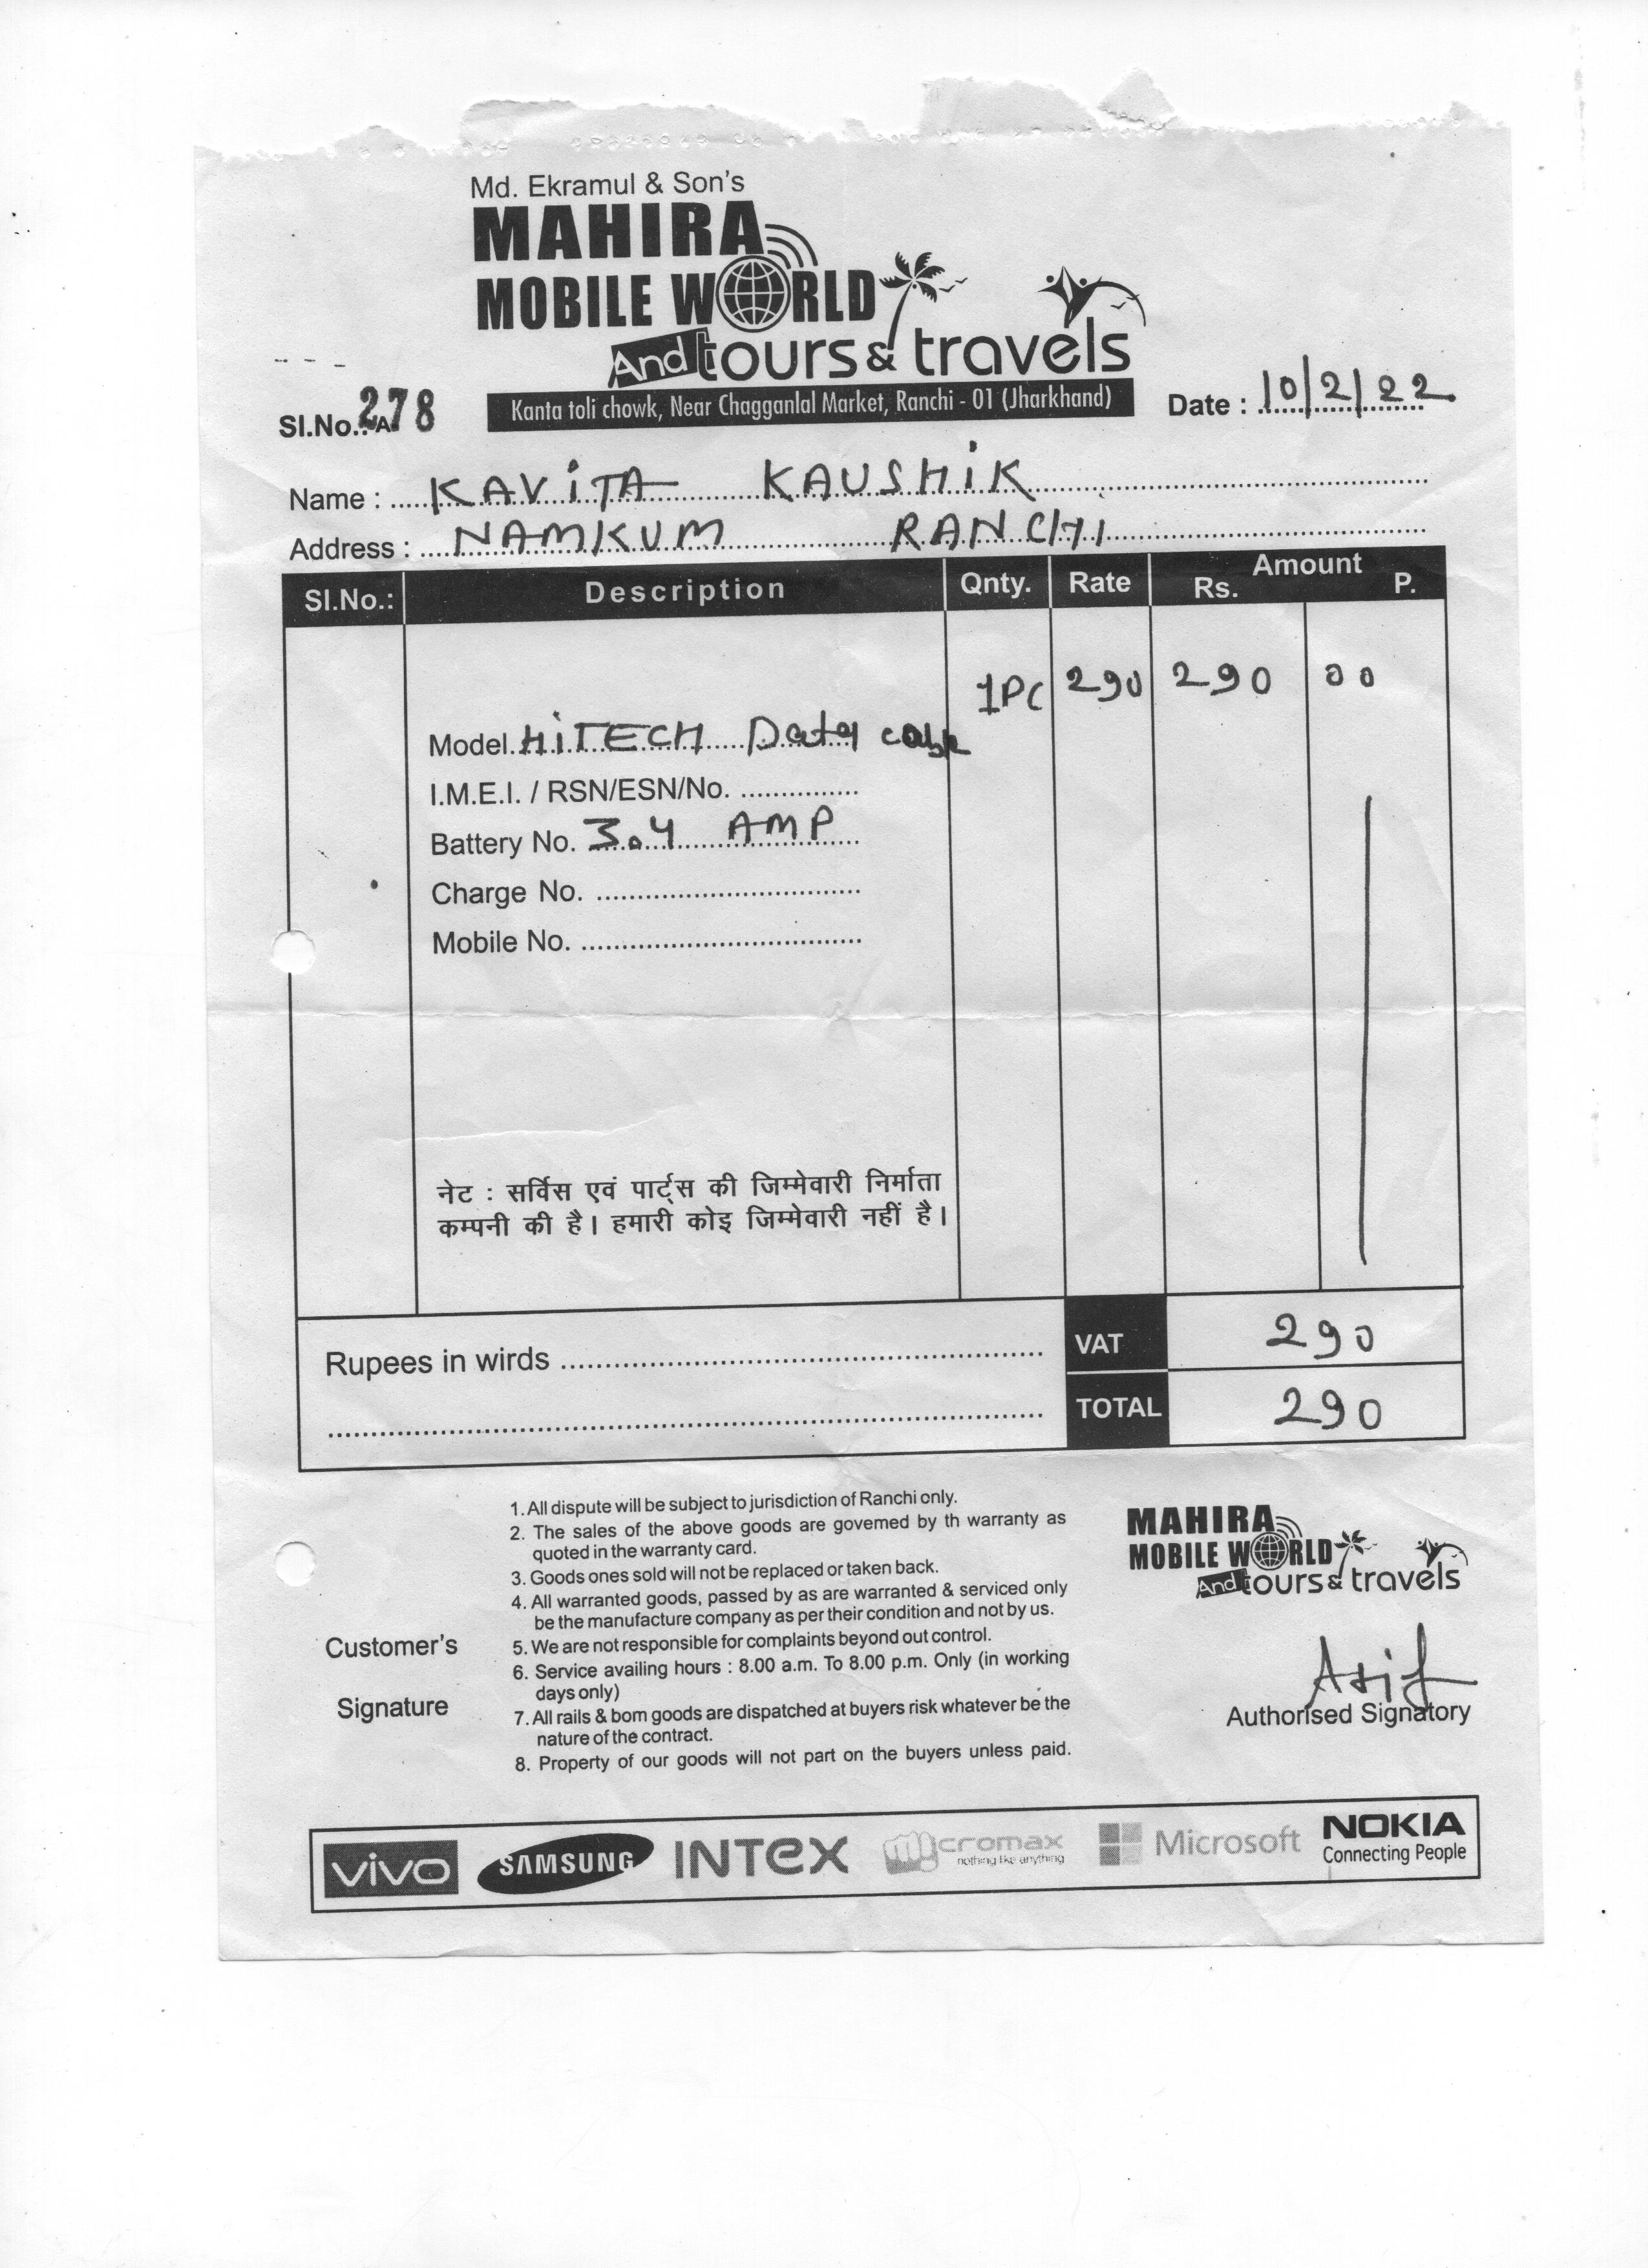 Md. Ekramul & Son's
MAHIRA
MOBILE WORLD
And tours & travels
Kanta toli chowk, Near Chagganlal Market, Ranchi - 01 (Jharkhand)
Sl.No.: 278
Date : 10/2/22
Name : KAVITA KAUSHIK
Address : NAMKUM RANCHI
Sl.No.: Description Qnty. Rate Amount Rs. P.
1PC 290 290 00
Model HiTECH Data
I.M.E.I. / RSN/ESN/No.
Battery No. 3.4 AMP
Charge No.
Mobile No.
नेट : सर्विस एवं पार्ट्स की जिम्मेवारी निर्माता
कम्पनी की है। हमारी कोइ जिम्मेवारी नहीं है।
Rupees in wirds
VAT 290
TOTAL 290
1. All dispute will be subject to jurisdiction of Ranchi only.
2. The sales of the above goods are govemed by th warranty as
quoted in the warranty card.
3. Goods ones sold will not be replaced or taken back.
4. All warranted goods, passed by as are warranted & serviced only
be the manufacture company as per their condition and not by us.
5. We are not responsible for complaints beyond out control.
6. Service availing hours : 8.00 a.m. To 8.00 p.m. Only (in working
days only)
7. All rails & bom goods are dispatched at buyers risk whatever be the
nature of the contract.
8. Property of our goods will not part on the buyers unless paid.
Customer's
Signature
MAHIRA
MOBILE WORLD
And tours & travels
Asif
Authorised Signatory
vivo SAMSUNG INTEX Micromax nothing like anything Microsoft NOKIA Connecting People